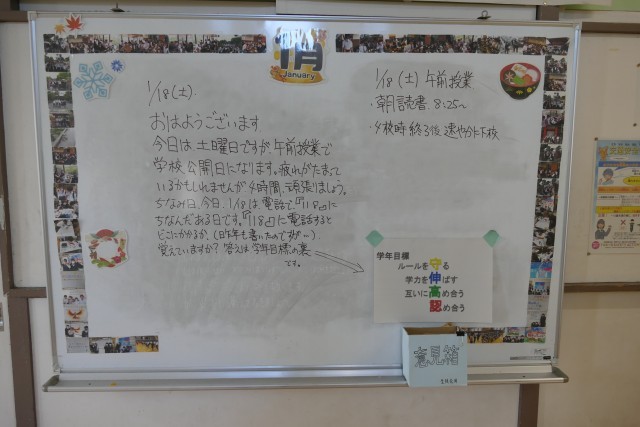 1月
January
1/18(土).
おはようございます
今日は土曜日ですが午前授業で
学校公開日になります。疲れがたまって
いるかもしれませんが4時間、頑張りましょう。
ちなみに今日、1/18は、電話で『118』に
ちなんだある日です。『118』に電話すると
どこにかかるか、(昨年も書いたのですが〜)
覚えていますか?答えは学年目標の裏
です。
1/18(土)午前授業
・朝読書 8:25〜
・4校時終了後速やかに下校
学年目標
ルールを守る
学力を伸ばす
互いに高め合う
認め合う
意見箱